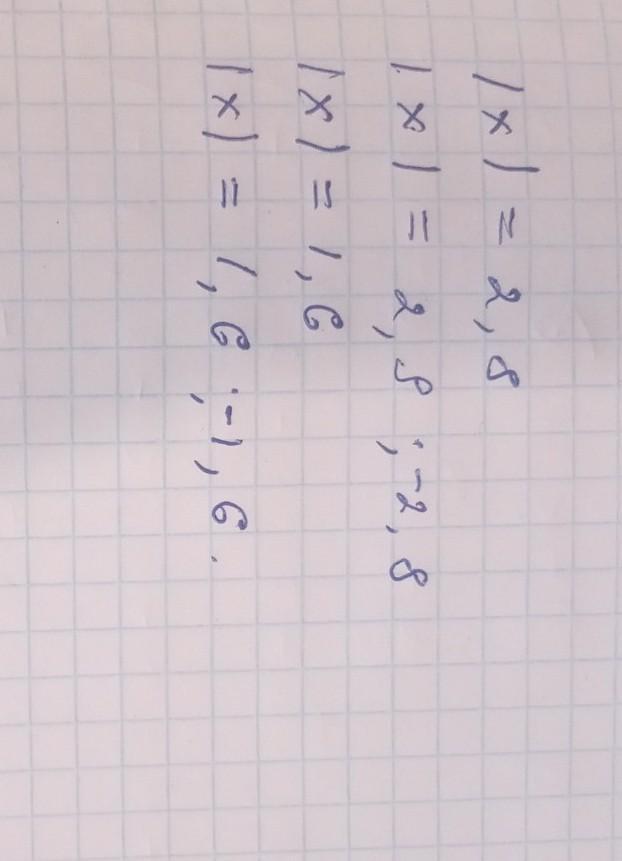 |x| = 2,8
|x| = 2,8 ; -2,8
|x| = 1,6
|x| = 1,6 ; -1,6.